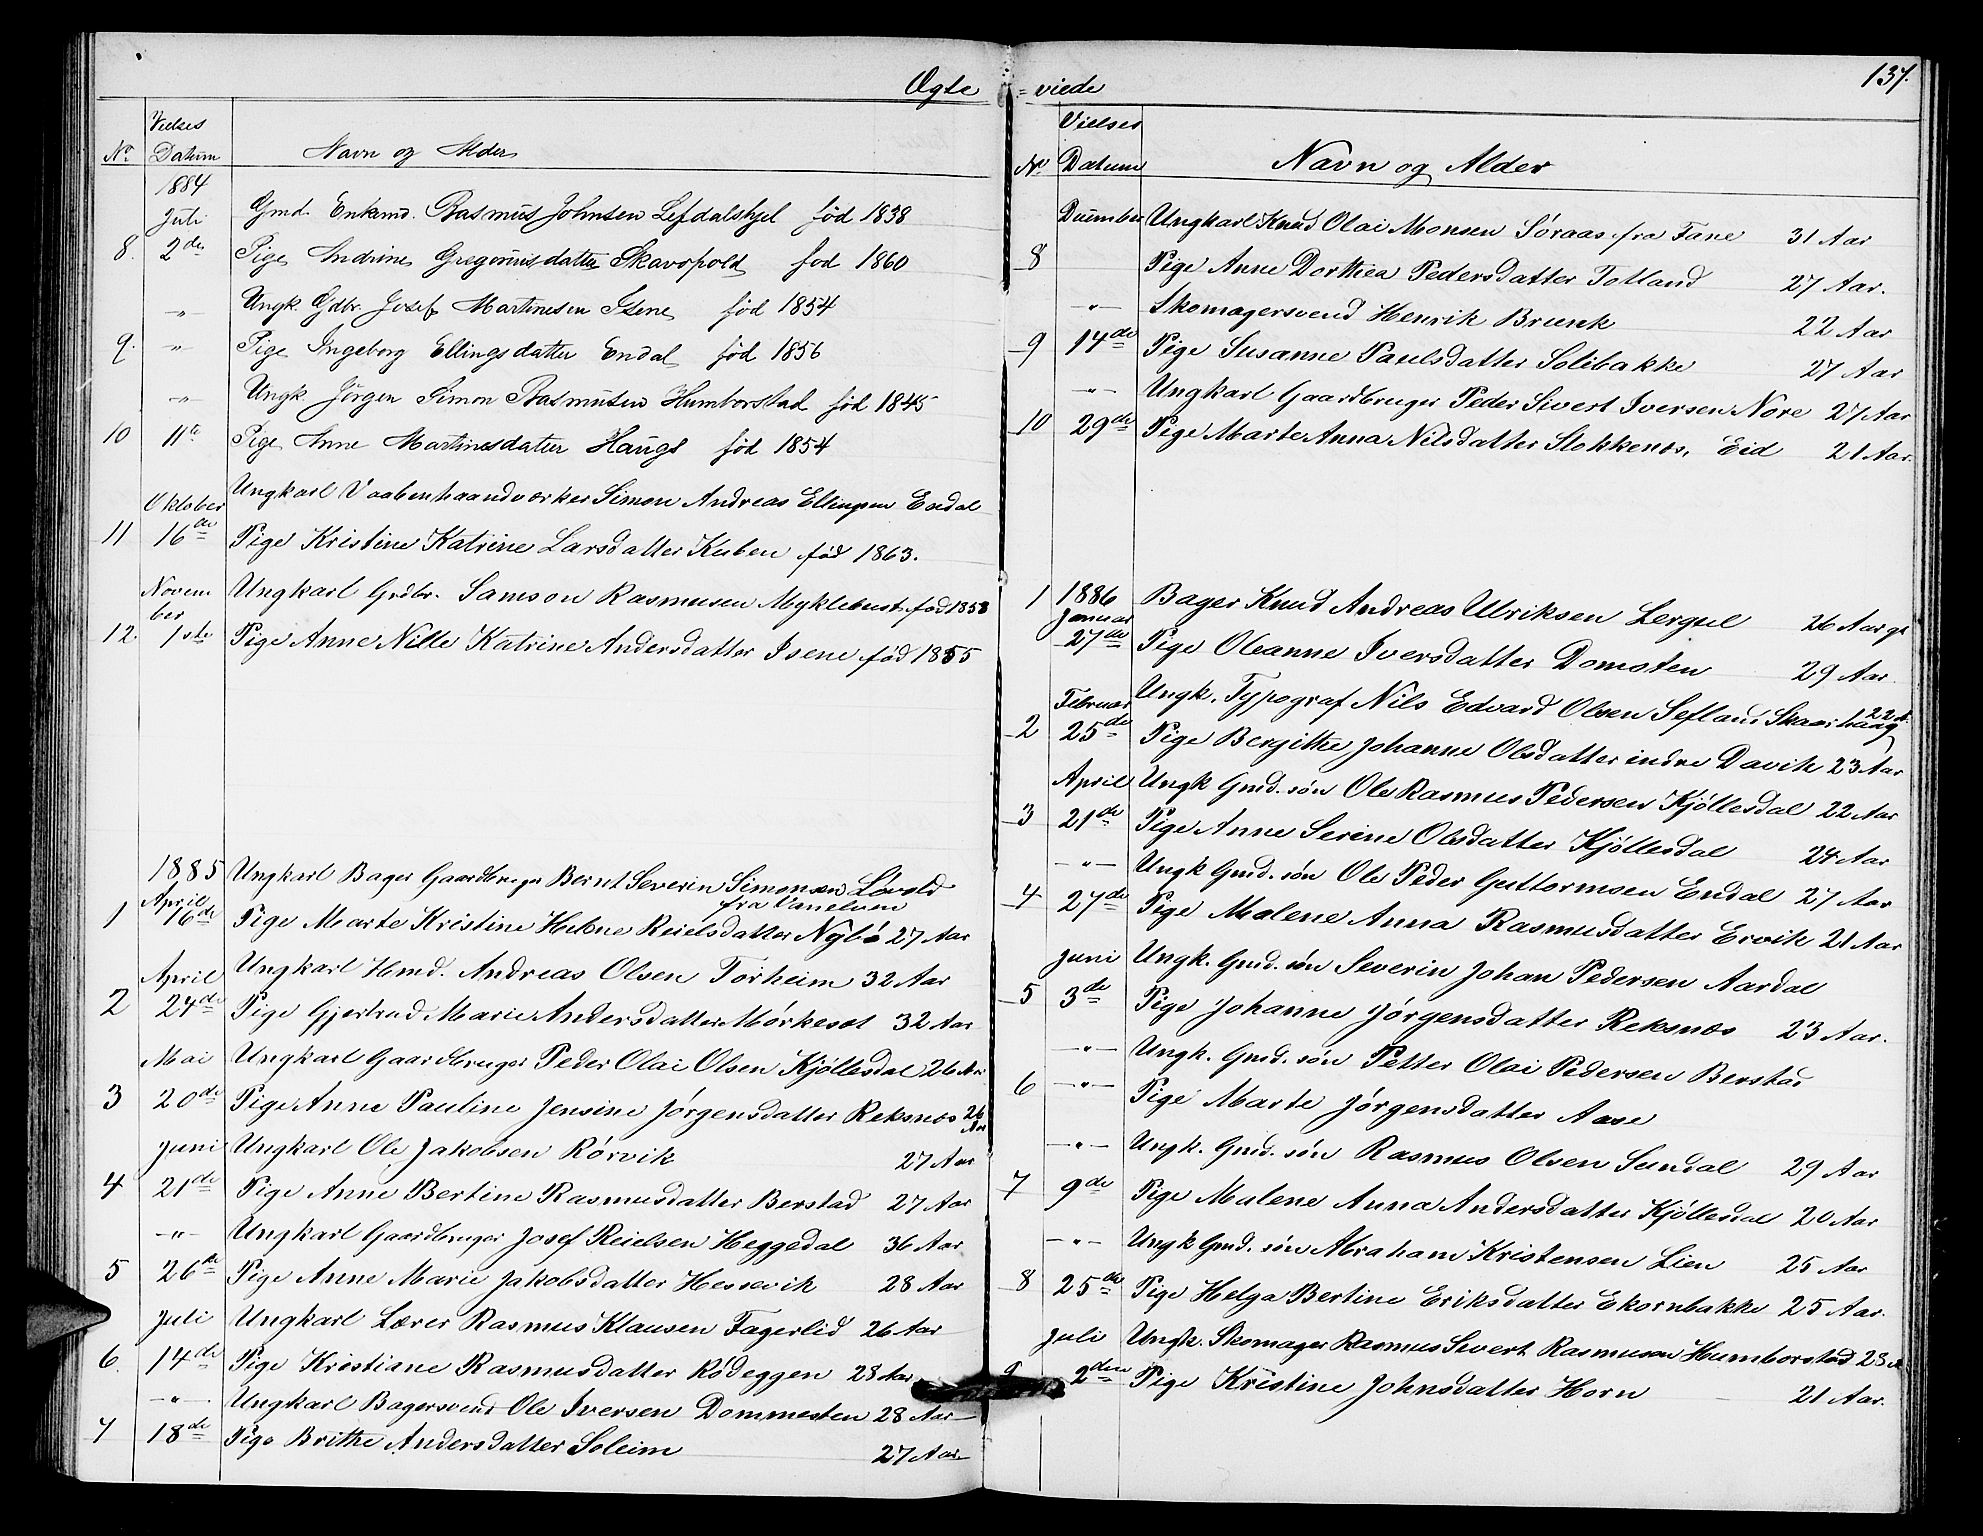 137.
Ægte = viede
No. Vielses Datum Navn og Alder
1884
Juli Gmd. Enkemd. Rasmus Johnsen Lefdalshjel fød 1838
8. 2den Pige Andrine Gregoriusdatter Skavøpold fød 1860
-"- Ungk. Gdbr. Josef Martinesen Isene fød 1854
9. -"- Pige Ingeborg Ellingsdatter Endal fød 1856
-"- Ungk. Jörgen Simon Rasmusen Humborstad fød 1845
10 11te Pige Anne Martinusdatter Hauge fød 1854
Oktober Ungkarl Vaabenhaandværker Simon Andreas Ellingsen Endal
11 16de Pige Kristine Katrine Larsdatter Kuben fød 1863.
Novem Ungkarl Grdbr. Samson Rasmusen Myklebust fød 1858
ber
12. 1ste Pige Anne Nille Katrine Andersdatter Isene fød 1855
1885 Ungkarl Bager Gaardbruger Bernt Severin Simonsen Løvold
April fra Vanelven
1 16de Pige Marte Kristine Helene Reielsdatter Nybö 27 Aar
April Ungkarl Hmd. Andreas Olsen Torheim 32 Aar
2 24de Pige Gjertrud Marie Andersdatter Mørkesæt 32 Aar
Mai Ungkarl Gaardbruger Peder Olai Olsen Kjøllesdal 26 Aar
3 20de Pige Anne Pauline Jensine Jørgensdatter Reksnæs 26 Aar
Juni Ungkarl Ole Jakobsen Rørvik 27 Aar
4 21de Pige Anne Bertine Rasmusdatter Berstad 27 Aar
-"- Ungkarl Gaardbruger Josef Reielsen Heggedal 36 Aar
5 26de Pige Anne Marie Jakobsdatter Hessevik 28 Aar
Juli Ungkarl Lærer Rasmus Klausen Fagerlid 26 Aar
6. 14de Pige Kristiane Rasmusdatter Rödeggen 28 Aar
-"- Ungkarl Bagersvend Ole Iversen Dommesten 28 Aar
7 18de Pige Brithe Andersdatter Soleim 27 Aar
No. Vielses Datum Navn og Alder
Desember Ungkarl Knud Olai Monsen Söraas fra Fane 31 Aar
8 Pige Anne Dorthea Pedersdatter Totland 27 Aar.
-"- Skomagersvend Henrik Brunk 22 Aar
9 14de Pige Susanne Paulsdatter Solibakke 27 Aar
-"- Ungkarl Gaardbruger Peder Sivert Iversen Nore 27 Aar
10 29de Pige Marte Anna Nilsdatter Stokkenæs, Eid 21 Aar.
1 1886 Bager Knud Andreas Ulriksen Lergul 26 Aar gl
Januar
27de Pige Oleanne Iversdatter Domsten 29 Aar.
Februar Ungk. Typograf Nils Edvard Olsen Sefland Skaarhaug 22 A.
2 25de Pige Bergitte Johanne Olsdatter indre Davik 23 Aar
April Ungk Gmd. sön Ole Rasmus Pedersen Kjöllesdal 22 Aar
3 21de Pige Anne Serine Olsdatter Kjöllesdal 24 Aar
-"- Ungk Gmd. sön Ole Peder Guttormsen Endal 27 Aar
4 27de Pige Malene Anna Rasmusdatter Ervik 21 Aar
Juni Ungk. Gmd. sön Severin Johan Pedersen Aardal
5 3de Pige Johanne Jørgensdatter Reksnæs 23 Aar.
-"- Ungk. Gmd. sön Petter Olai Pedersen Berstad
6 -"- Pige Marte Jørgensdatter Aase
-"- Ungk. Gmd. sön Rasmus Olsen Sundal 29 Aar
7 9de Pige Malene Anna Andersdatter Kjöllesdal 20 Aar
-"- Ungk Gmd. sön Abraham Kristensen Lien 25 Aar
8 25de Pige Helga Bertine Eriksdatter Ekornbakke 25 Aar.
Juli Ungk. Skomager Rasmus Sivert Rasmusen Humborstad 23 A
9 2den Pige Kristine Johnsdatter Horn 21 Aar.